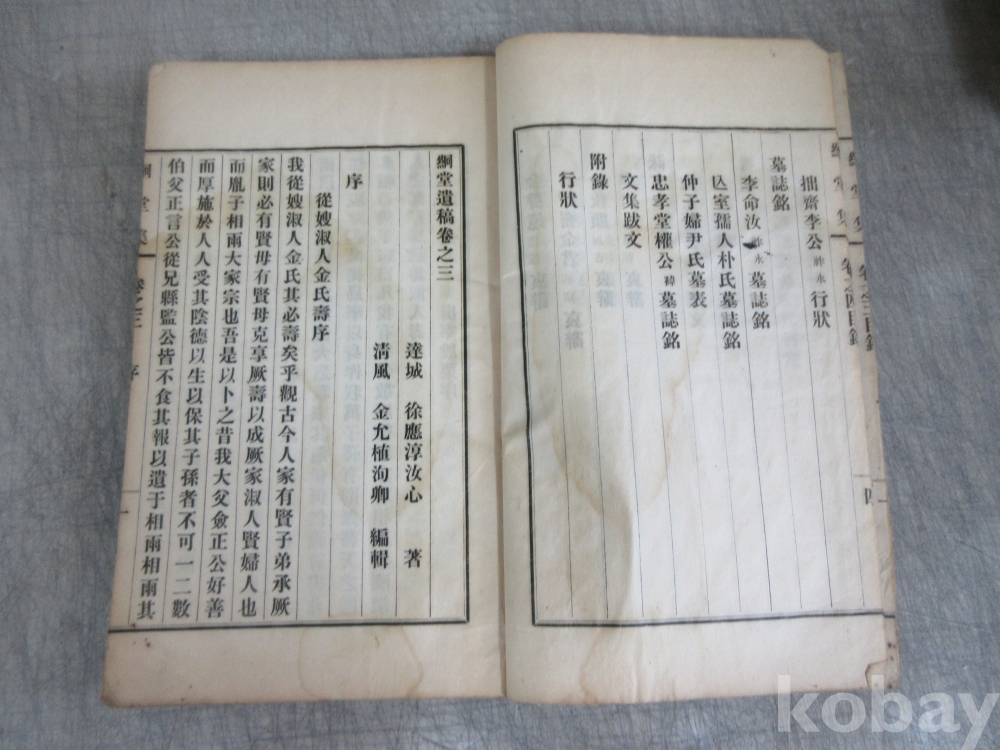 拙齋李公祚永行狀
墓誌銘
李命汝祚永墓誌銘
亾室孺人朴氏墓誌銘
仲子婦尹氏墓表
忠孝堂權公墓誌銘
文集跋文
附錄
行狀
絅堂遺稿卷之三
達城 徐應淳汝心 著
淸風 金允植洵卿 編輯
序
從嫂淑人金氏壽序
我從嫂淑人金氏其必壽矣乎觀古今人家有賢子弟承厥
家則必有賢母有賢母克享厥壽以成厥家淑人賢婦人也
而胤子相雨大家宗也吾是以卜之昔我大父僉正公好善
而厚施於人人受其陰德以生以保其子孫者不可一二數
伯父正言公從兄縣監公皆不食其報以遺于相雨相雨其
絅堂集 卷之三 序 一
kobay